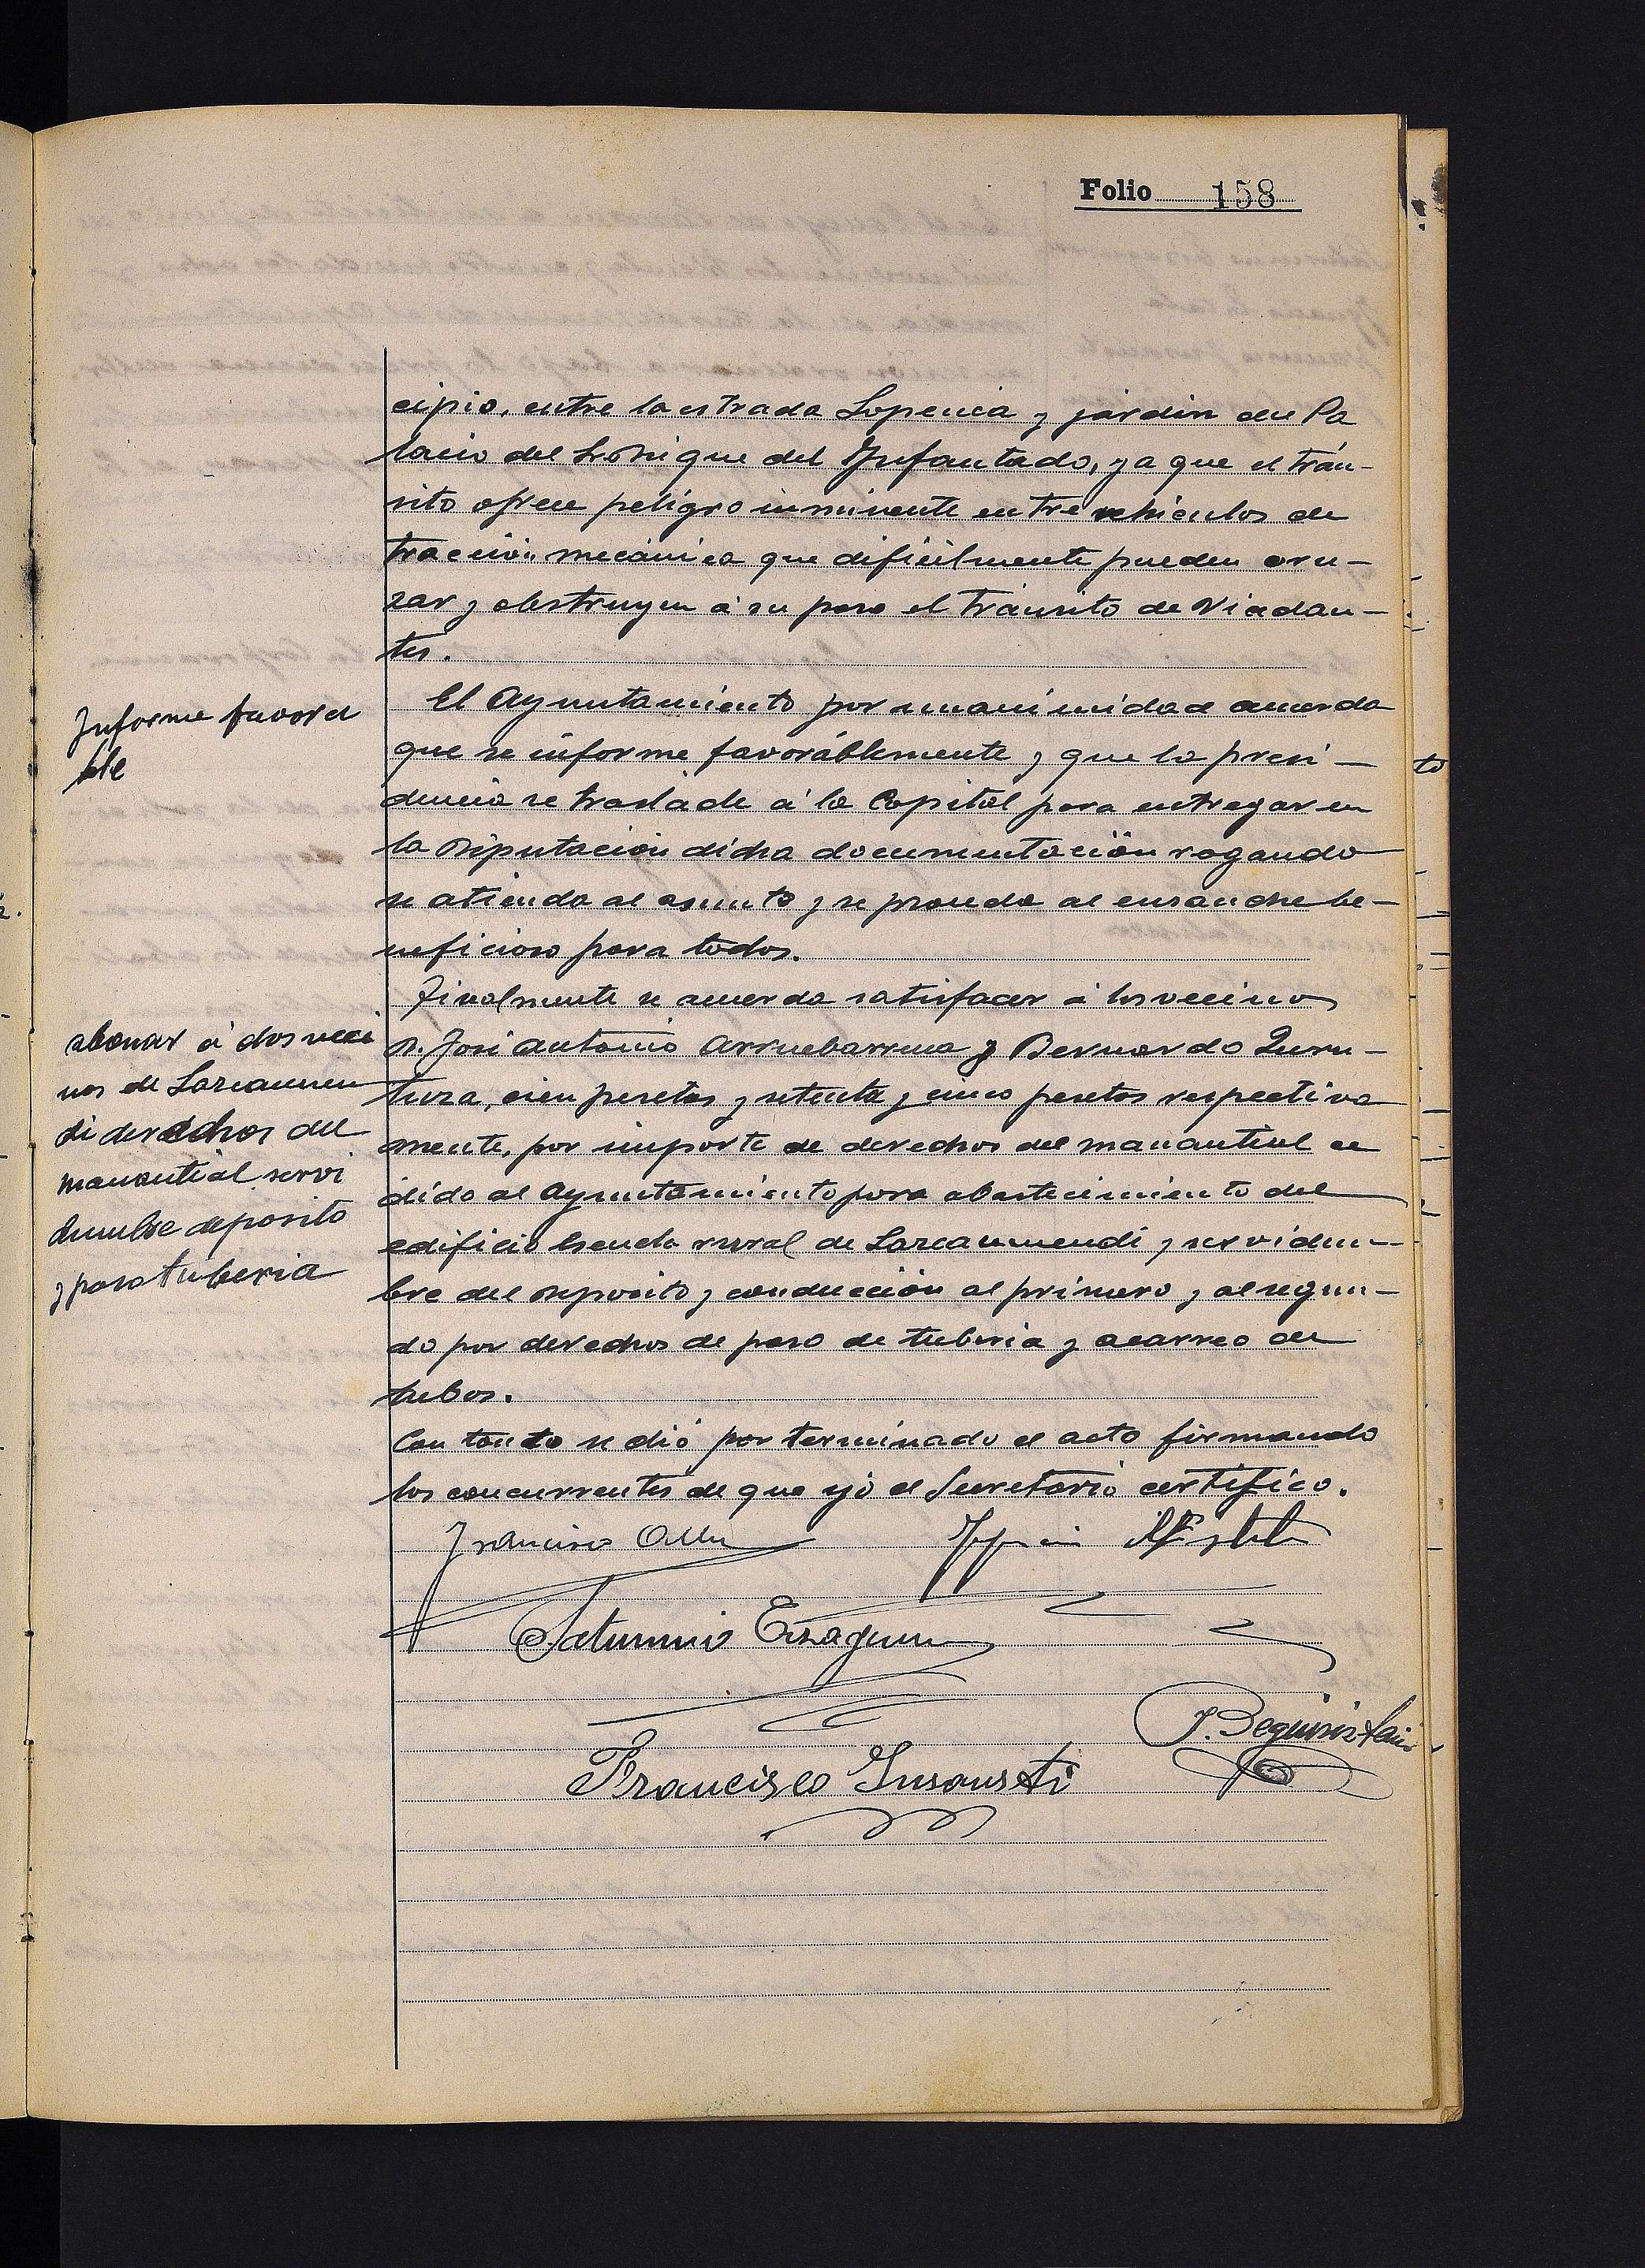 Folio 158
cipio, entre la estrada Lopenea y jardin del Pa
lacio del Sr. Duque del Infantado, ya que el trán-
sito ofrece peligro inminente entre vehiculos de
tracción mecánica que dificilmente pueden cru-
zar y obstruyen á su paso el tránsito de viadan-
tes.
Informe favora
ble
El Ayuntamiento por unanimidad acuerda
que se informe favoráblemente y que la presi-
dencia se traslade á la Capital para entregar en
la Diputación dicha documentación rogando
se atienda al asunto y se proceda al ensanche be-
neficioso para todos.
abonar á dos veci
nos de Lazcaumen
di derechos del
manantial servi
dumbre deposito
y paso tuberia
Finalmente se acuerda satisfacer á los vecinos
D. José Antonio Arruebarrena y Bernardo Zuru-
tuza, cien pesetas y setenta y cinco pesetas respectiva
mente, por importe de derechos del manantial ce
dido al Ayuntamiento para abastecimiento del
edificio Escuela rural de Lazcaumendi y servidum-
bre del deposito y conducción al primero y al segun-
do por derechos de paso de tuberia y acarreo de
tubos.
Con tanto se dió por terminado el acto firmando
los concurrentes de que yo el Secretario certifico.
Francisco
Saturnino
J. Beguiristain
Francisco Insausti